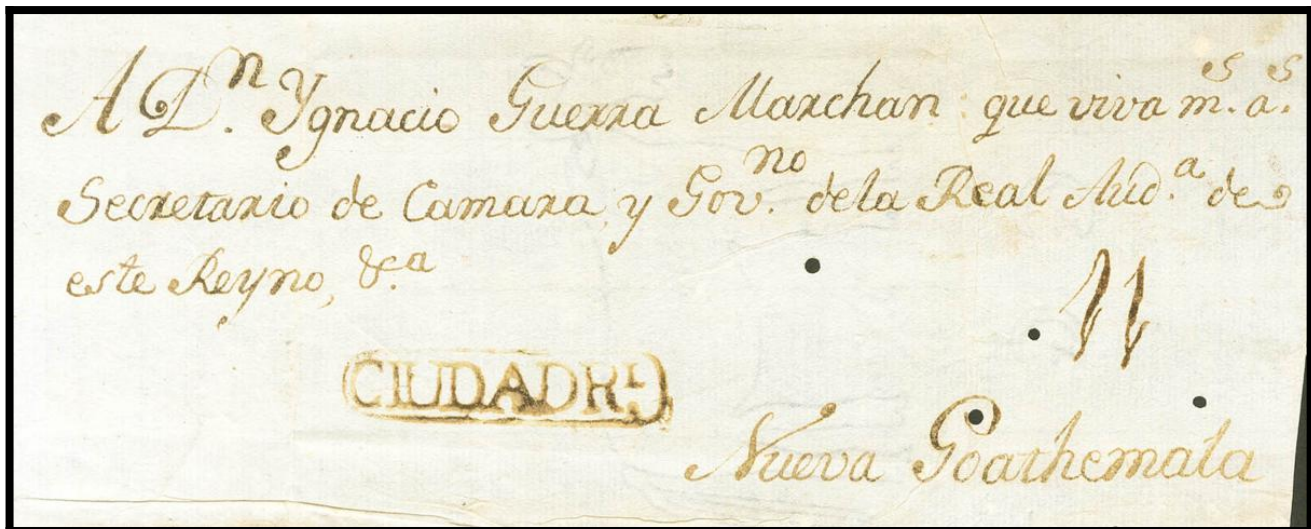 A Dⁿ. Ygnacio Guerra Marchan que viva mˢ. aˢ.
Secretario de Camara, y Govⁿᵒ. dela Real Audᵃ. de
este Reyno, &ᵃ
11
CIUDAD Rᴸ
Nueva Goathemala